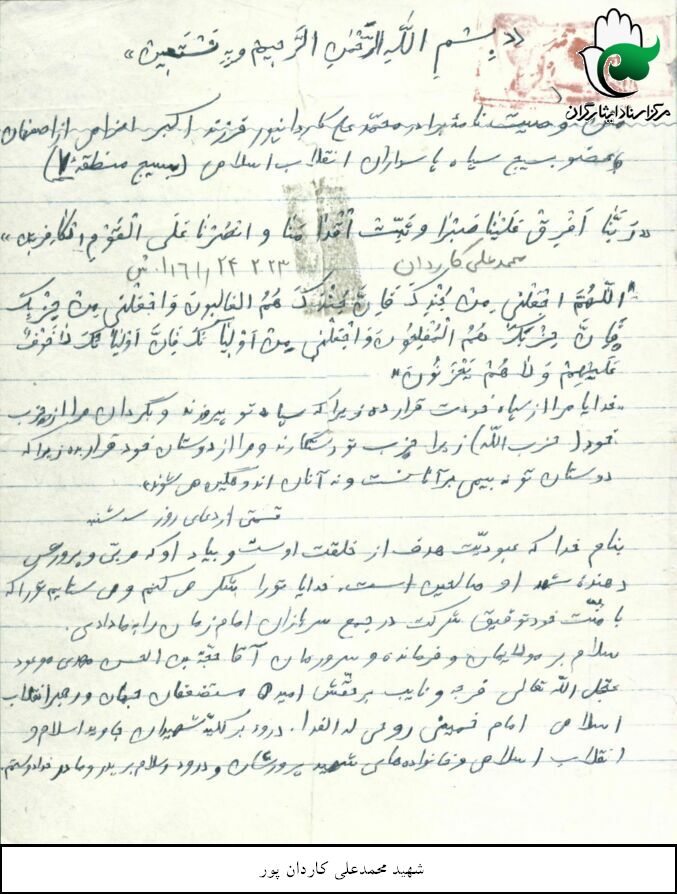 «بِسْمِ اللَّهِ الرَّحْمٰنِ الرَّحِیمِ وَ بِهِ نَسْتَعِین»
مرکز اسناد ایثارگران
متن وصیت نامه برادر محمد علی کاردانپور فرزند اکبر اعزامی از اصفهان
عضو بسیج سپاه پاسداران انقلاب اسلامی (بسیج منطقه ۷)
«رَبَّنا اَفْرِغْ عَلَیْنا صَبْراً وَ ثَبِّتْ اَقْدامَنا وَ انْصُرْنا عَلَی الْقَوْمِ الْکافِرین»
محمد علی کاردان
"اَللّهُمَّ اجْعَلْنی مِنْ جُنْدِکَ فَاِنَّ جُنْدَکَ هُمُ الغالِبونَ وَاجْعَلْنی مِنْ حِزْبِکَ
فَاِنَّ حِزْبَکَ هُمُ الْمُفْلِحُونَ وَاجْعَلْنی مِنْ اَوْلِیائِکَ فَاِنَّ اَوْلِیائَکَ لاخَوْفٌ
عَلَیْهِمْ وَلا هُمْ یَحْزَنُونَ"
«خدایا مرا از سپاه خودت قرار ده زیرا که سپاه تو پیروزند و بگردان مرا از حزب
خود (حزب الله) زیرا حزب تو رستگارند و مرا از دوستان خود قرار بده زیرا که
دوستان تو نه بیمی بر آنانست و نه آنان اندوهگین می شوند»
قسمتی از دعای روز سه شنبه
بنام خدا که عبودیّت هدف از خلقت اوست و بیاد او که مربّی و پرورش
دهندهٔ او صالحین است. خدایا تو را شکر می کنم و می ستایم تو را که
با منّت خود توفیق شرکت در جمع سربازان امام زمان را به ما دادی.
سلام بر مولایمان و فرمانده و سرورمان آقا حجّة بن الحسن مهدی موعود
عجّل اللّه تعالی فرجه و نایب برحقّش امید مستضعفان جهان و رهبر انقلاب
اسلامی امام خمینی روحی له الفدا. درود بر کلیّه شهیدان جاوید اسلام و
انقلاب اسلامی و خانواده های شهید پرورشان و درود و سلام بر پدر و مادر
شهید محمدعلی کاردان پور